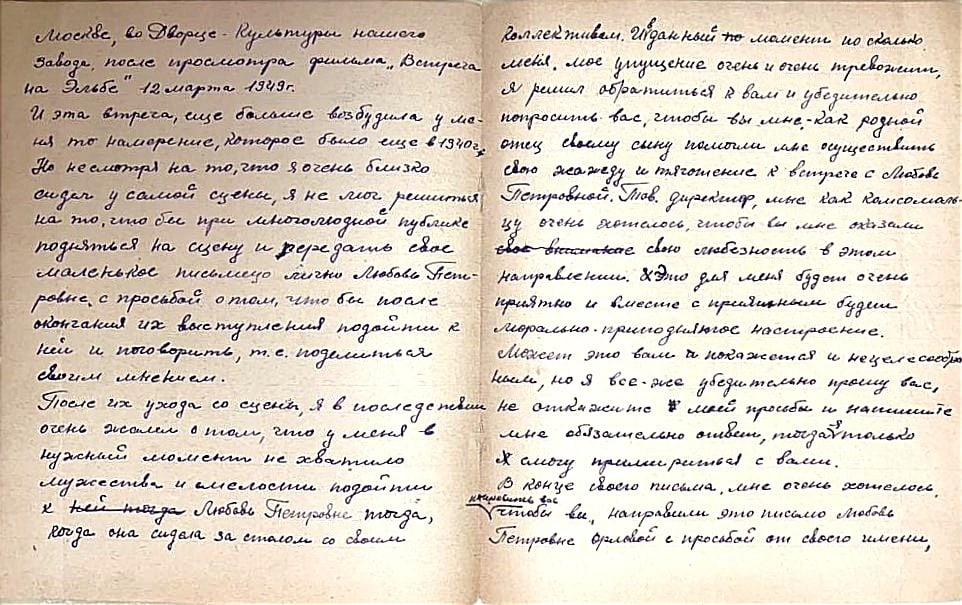 Москве, во Дворце-Культуры нашего
завода, после просмотра фильма „Встреча
на Эльбе" 12 марта 1949г.
И эта встреча, еще больше возбудила у ме-
ня то намерение, которое было еще в 1940г.
Но несмотря на то, что я очень близко
сидел у самой сцены, я не мог решиться
на то, что бы при многолюдной публике
подняться на сцену и передать свое
маленькое письмецо лично Любовь Пет-
ровне с просьбой о том, что бы после
окончания их выступления подойти к
ней и поговорить, т.е. поделиться
своим мнением.
После их ухода со сцены, я в последствии
очень жалел о том, что у меня в
нужный момент не хватило
мужества и смелости подойти
к ней тогда Любовь Петровне тогда,
когда она сидела за столом со своим
коллективом. И в данный по момент по сколько
меня, мое упущение очень и очень тревожит,
я решил обратиться к вам и убедительно
попросить вас, чтобы вы мне, как родной
отец своему сыну помогли мне осуществить
свою жажду и тяготение к встрече с Любовь
Петровной. Тов. директор, мне как комсомоль-
цу очень хотелось, чтобы вы мне оказали
свое внимание свою любезность в этом
направлении. Это для меня будет очень
приятно и вместе с приятным будет
морально-приподнятое настроение.
Может это вам и покажется и нецелесообраз
ным, но я все-же убедительно прошу вас,
не откажите моей просьбы и напишите
мне обязательно ответ, тогда только
Я смогу примириться с вами.
В конце своего письма, мне очень хотелось,
попросить вас
чтобы вы, направили это письмо Любовь
Петровне Орловой с просьбой от своего имени,